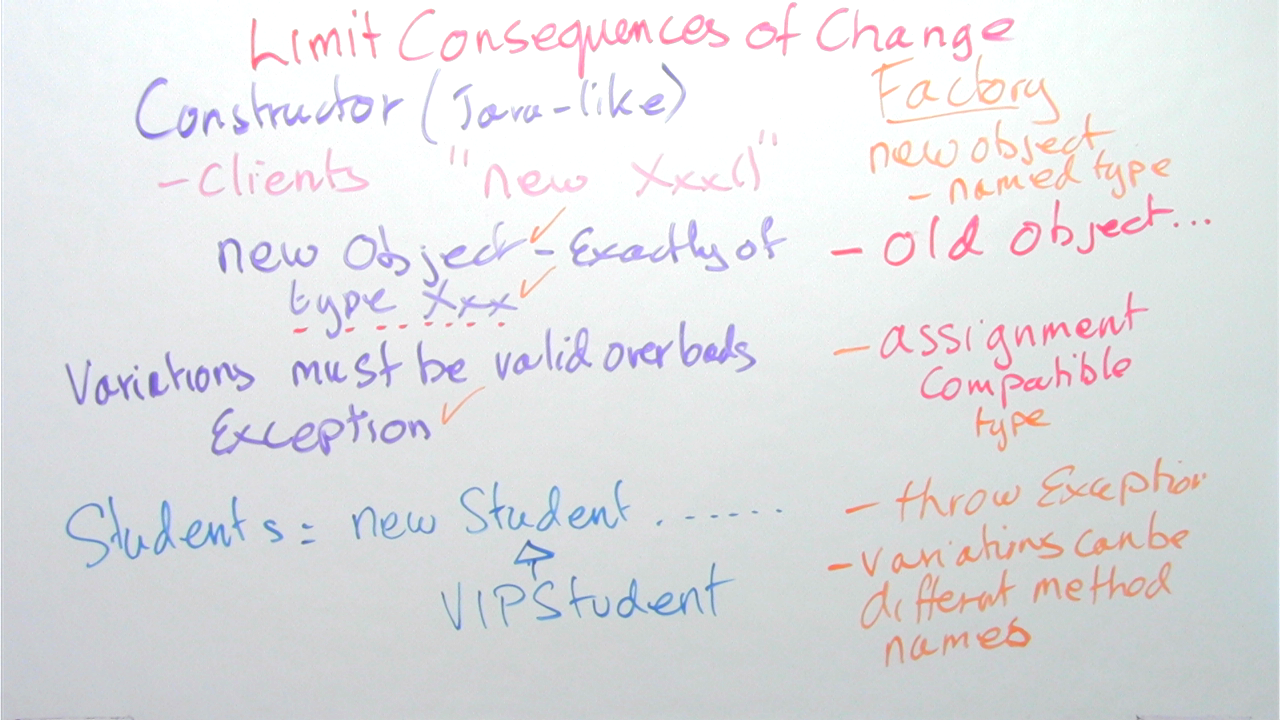 Limit Consequences of Change
Constructor (Java-like)
- Clients "new Xxx()"
new Object - Exactly of
type Xxx
Variations must be valid overloads
Exception
Student s = new Student . ......
VIPStudent
Factory
new object
- named type
- old object...
- assignment
compatible
type
- throw Exception
- variations can be
different method
names